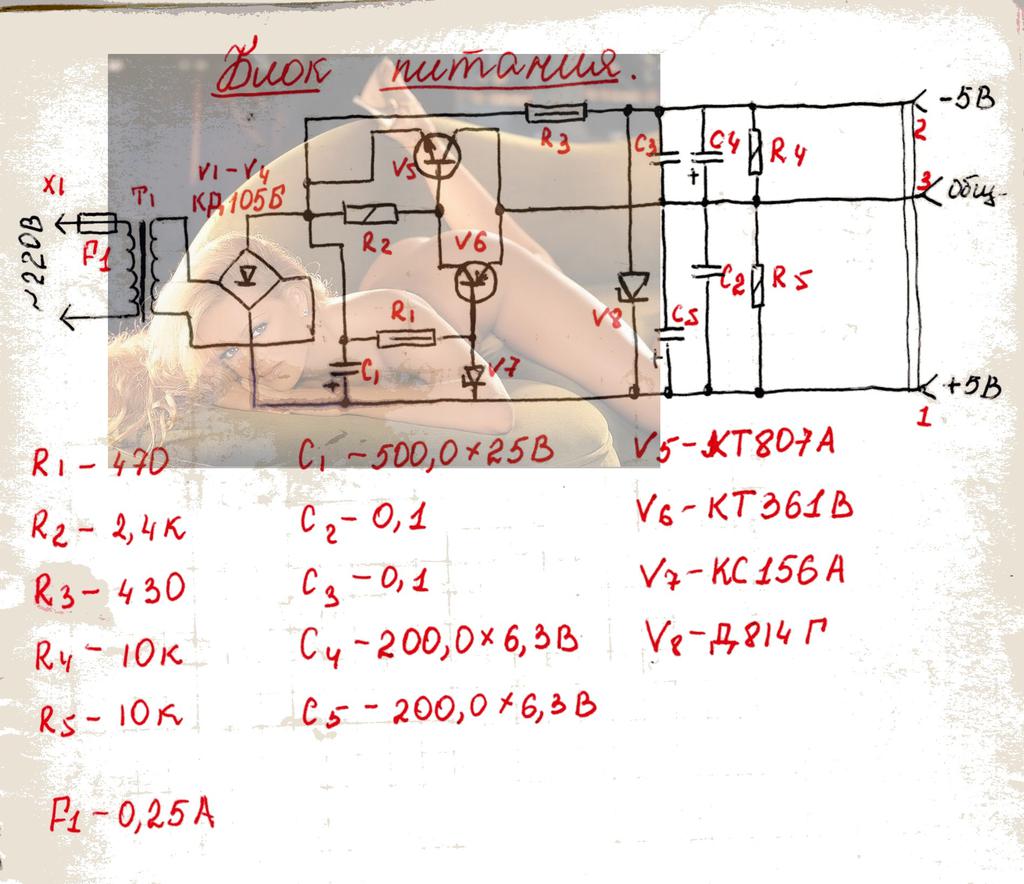 Блок питания.
-5В
R3
C3
C4
R4
2
V5
V1-V4
КД105Б
X1
T1
3
Общ.
~220В
F1
R2
V6
C2
R5
+
R1
V8
C5
+
C1
V7
+
+5В
1
R1 - 470
C1 - 500,0×25В
V5 - КТ807А
R2 - 2,4К
C2 - 0,1
V6 - КТ361В
R3 - 430
C3 - 0,1
V7 - КС156А
R4 - 10К
C4 - 200,0×6,3В
V8 - Д814Г
R5 - 10К
C5 - 200,0×6,3В
F1 - 0,25А